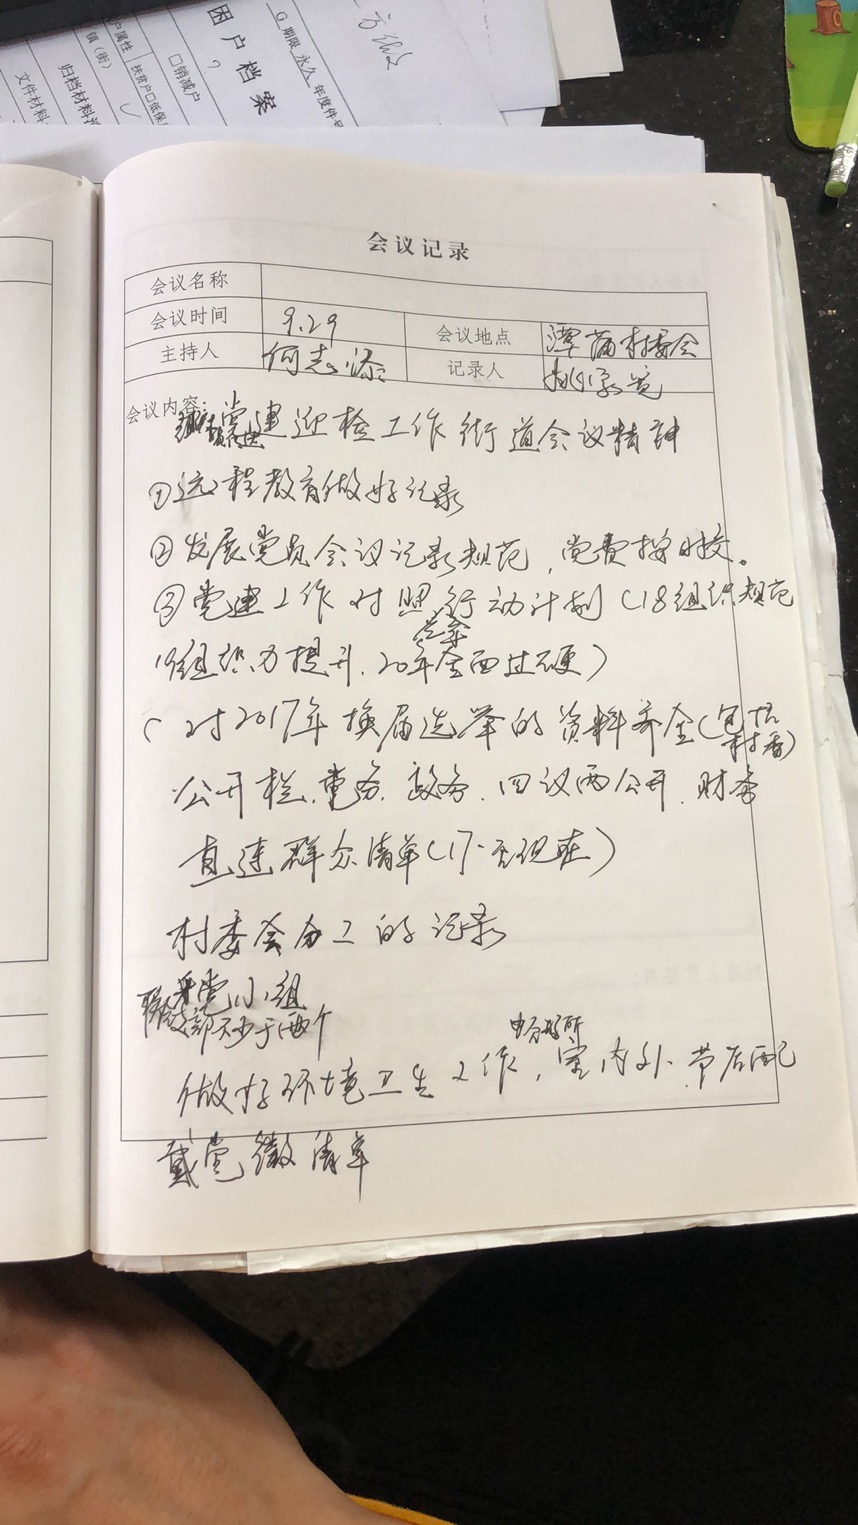 困户档案
期限 永久 年度件号
户属性 扶贫户口低保
口销减户
镇(街)
归档材料
文件材料
会议记录
会议名称
会议时间 9.29 会议地点 潭蒲村委会
主持人 何志添 记录人
会议内容:
党建迎检工作街道会议精神
①远程教育做好记录
②发展党员会议记录规范,党费按时交。
③党建工作对照行动计划(18组织规范
19组织力提升.20年全面过硬)
(对2017年换届选举的资料齐全(包括村委)
公开栏.党务.政务.四议两公开.财务
直连群众清单(17.至现在)
村委会分工的记录
党小组
支部不少于两个
做好环境卫生工作,室内外.节后
戴党徽清单